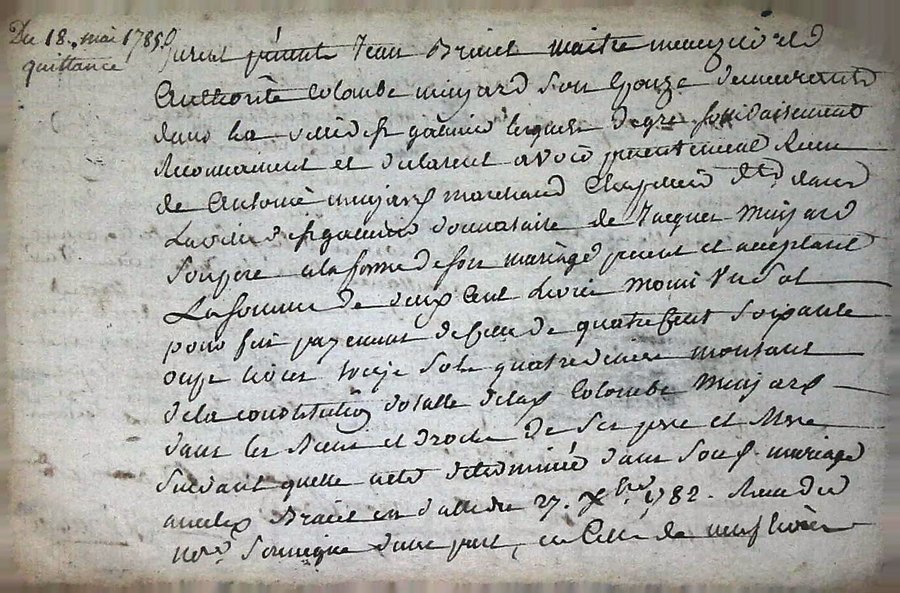 Du 18. mai 1785
quittance
furent présent Jean Brivet maitre menuzié et
Authorité Colombe minjard son Epouze demeurants
dans la ville de st galmier lesquels de gré solidairement
Reconnaissent et declarent avoir presentement Receu
de Antoine minjard marchand Chapelier dt dans
La ville de st galmier donnataire de Jacques Minjard
Son pere a la forme de son mariage present et acceptant
La somme de deux Cent Livres moins Un Sol
pour fin payement de Celle de quatre Cent Soixante
onze livres treize Sols quatre deniers montant
de la constitution dotalle de lad Colombe Minjard
dans les Biens et droits de Ses pere et Mere
Suivant quelle a eté determinée dans Son mariage
avec led Brivet en datte du 27. Xbre 1782. Receu du
nore Soussigné d'une part, et Celle de neuf livres